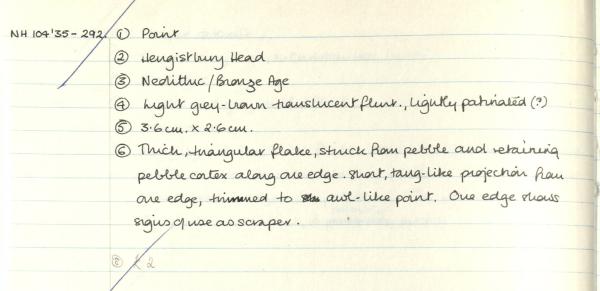 NH 104'35-292. ① Point
② Hengistbury Head
③ Neolithic/Bronze Age
④ Light grey-brown translucent flint., lightly patinated (?)
⑤ 3.6cm. x 2.6cm.
⑥ Thick, triangular flake, struck from pebble and retaining
pebble cortex along one edge. Short, tang-like projection from
one edge, trimmed to awl-like point. One edge shows
signs of use as scraper.
2